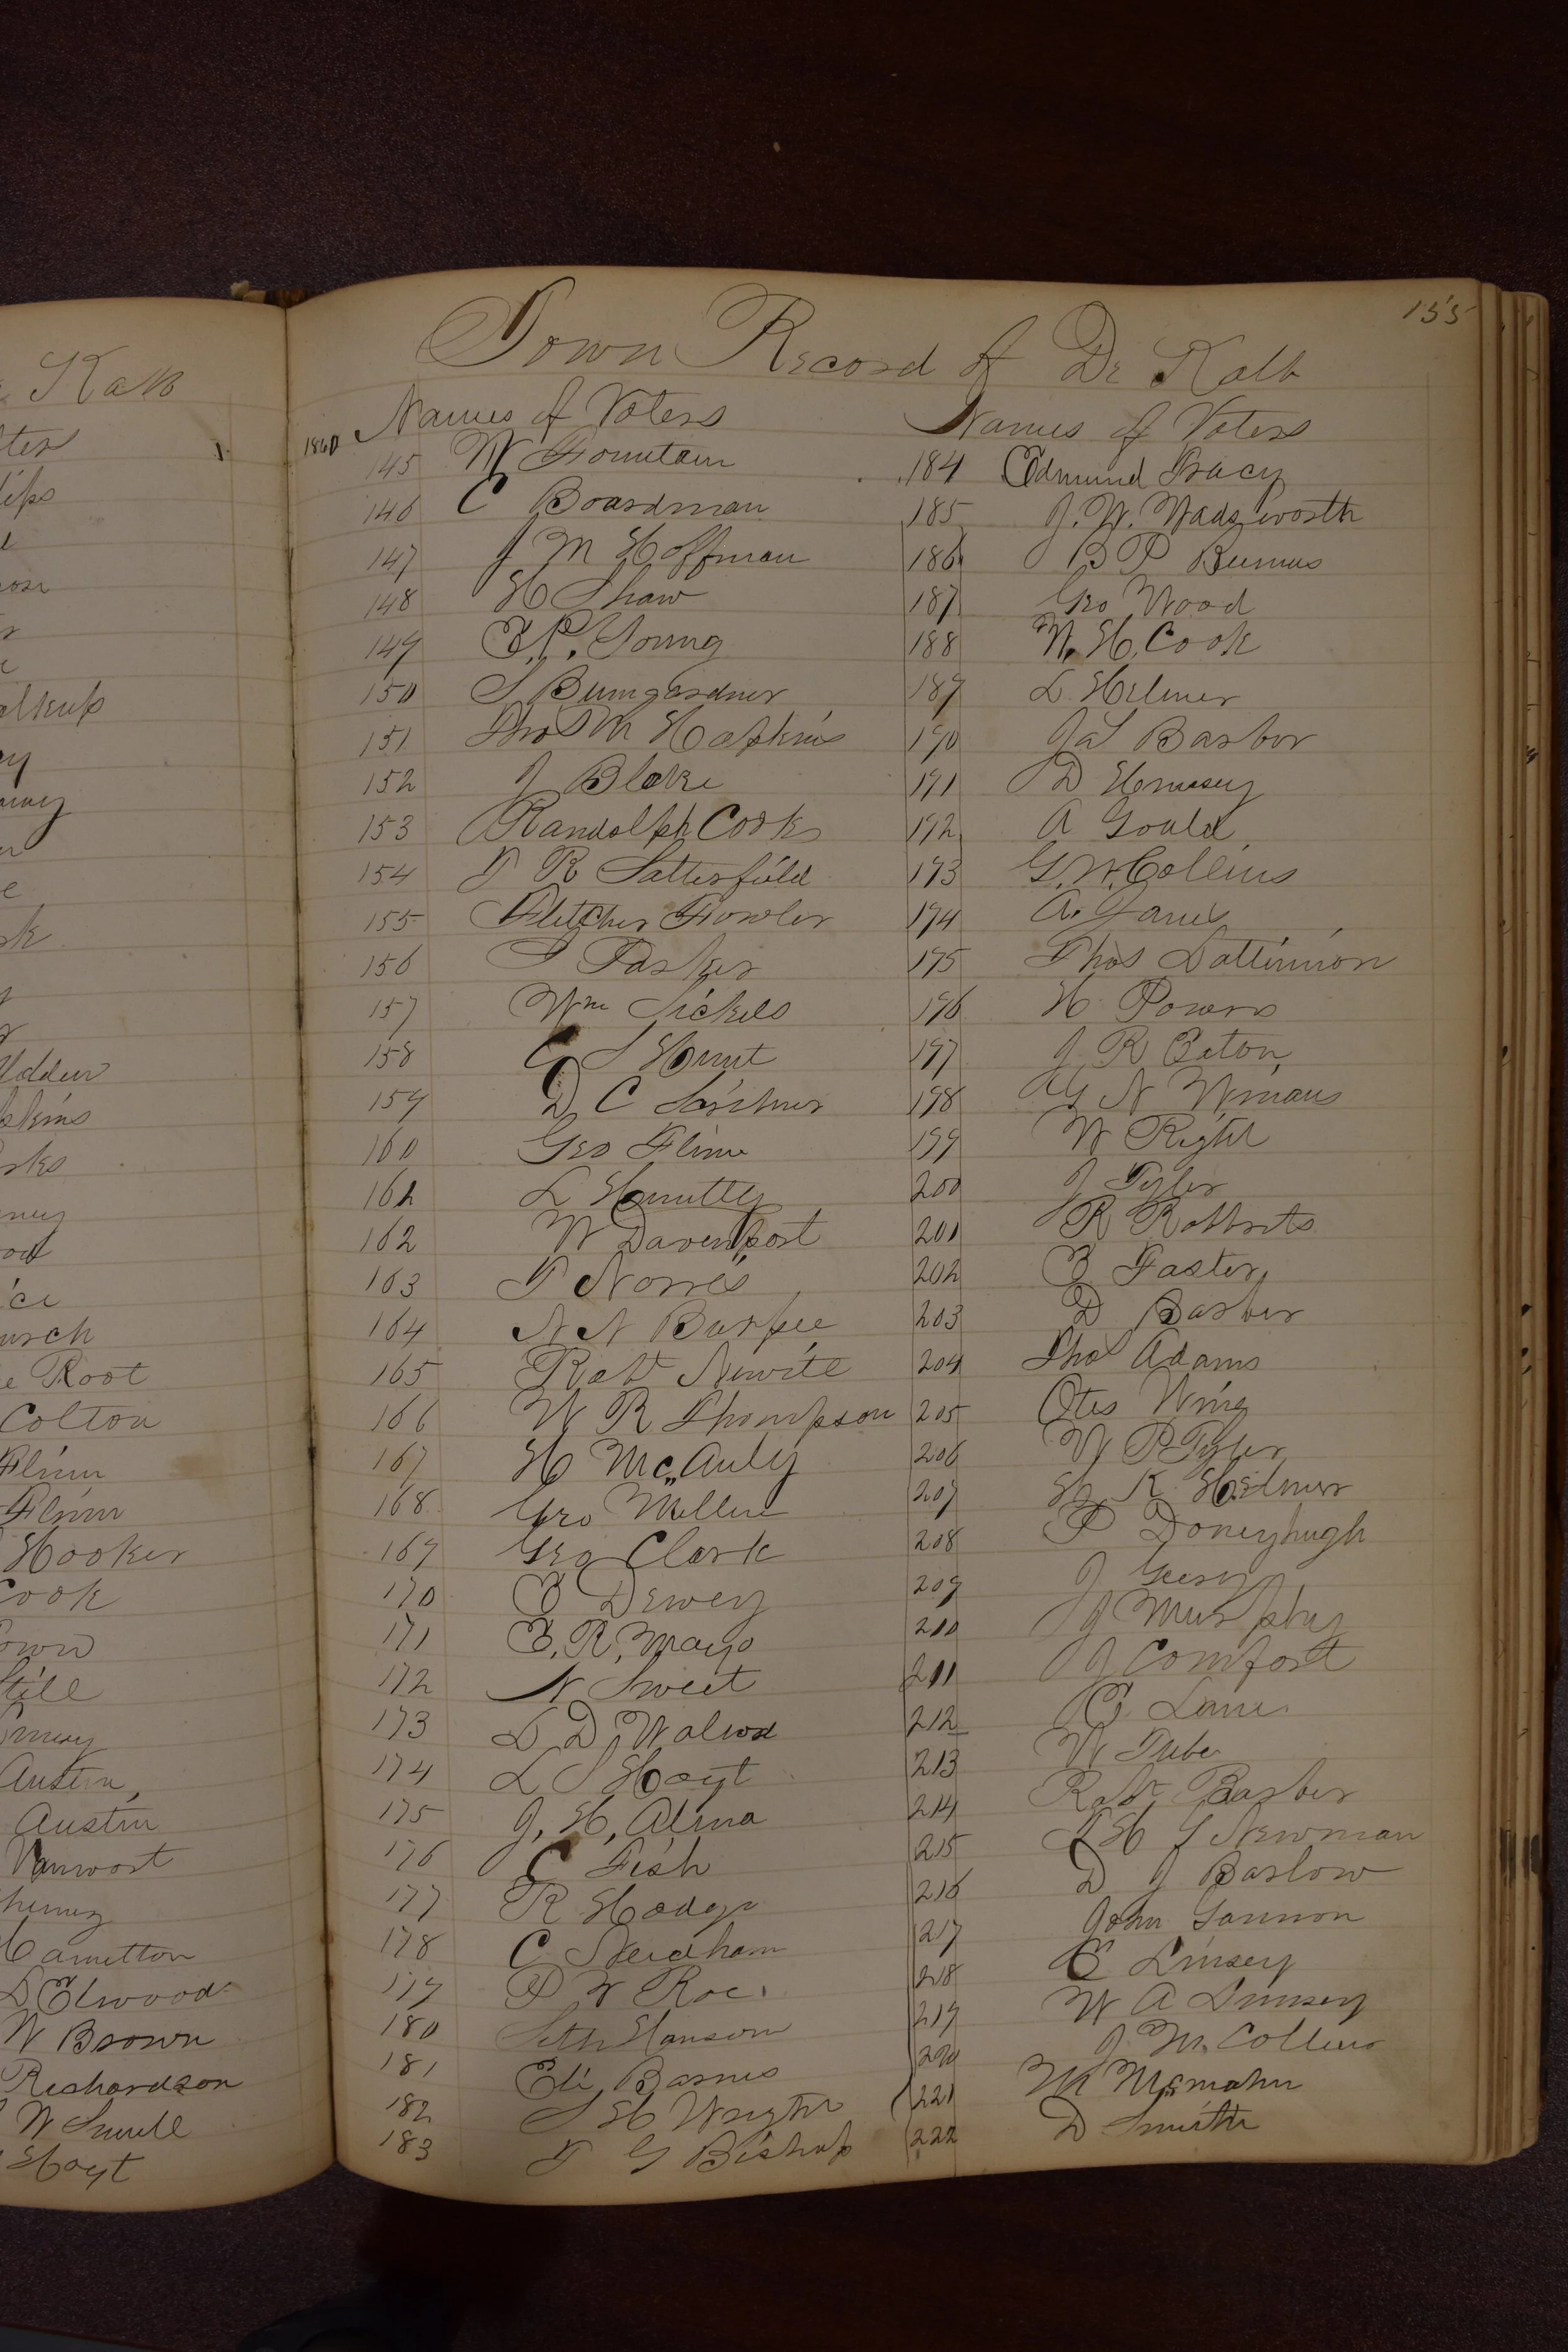 155
Town Record of De Kalb
1860 Names of Voters
145 W Fountain
146 C Boardman
147 J M Hoffman
148 H Shaw
149 E. P. Young
150 S Bumgardner
151 Thos M Hopkins
152 J Blake
153 Randolph Cook
154 T R Satterfield
155 Fletcher Fowler
156 S Parker
157 Wm Sickels
158 C S Hunt
159 D C
160 Geo Flinn
161 L
162 W Davenport
163 T Norris
164 N N Burpee
165 Robt Newitt
166 W R Thompson
167 H McAuly
168 Geo Miller
169 Geo Clark
170 E Dewey
171 E. R. Mayo
172 N Sweet
173 L D
174 L S Hoyt
175 J. H. Alma
176 C Fish
177 R Hodge
178 C Needham
179 P W Roe
180 Seth Hanson
181 Eli Barnes
182 S H Wright
183 T G Bishop
Names of Voters
184 Edmund Tracy
185 J. W. Wadsworth
186 B P
187 Geo Wood
188 W. H. Cook
189 L. Helmer
190 Barber
191 D
192 A Gould
193 G. W. Collins
194 A.
195 Thos
196 H Powers
197 J R Eaton
198 N Winans
199 W Right
200 J Tyler
201 R Robbrts
202 E Foster
203 D Barber
204 Thos Adams
205 Otis Wing
206 W P Tyler
207 K Helmer
208 P Doneyhugh
209 J
210 J Murphy
211 J Comfort
212 E Lane
213 W Tube
214 Robt Barber
215 H G Newman
216 D J Barlow
217 John Gannon
218 E Linsey
219 W A Linsey
220 J M. Collins
221 M McMahn
222 D Smith
Kalb
Root
Colton
Flinn
Flinn
Hooker
Cook
Austin
Austin
Vanwort
Hamilton
Elwood
W Brown
Richardson
W
Hoyt